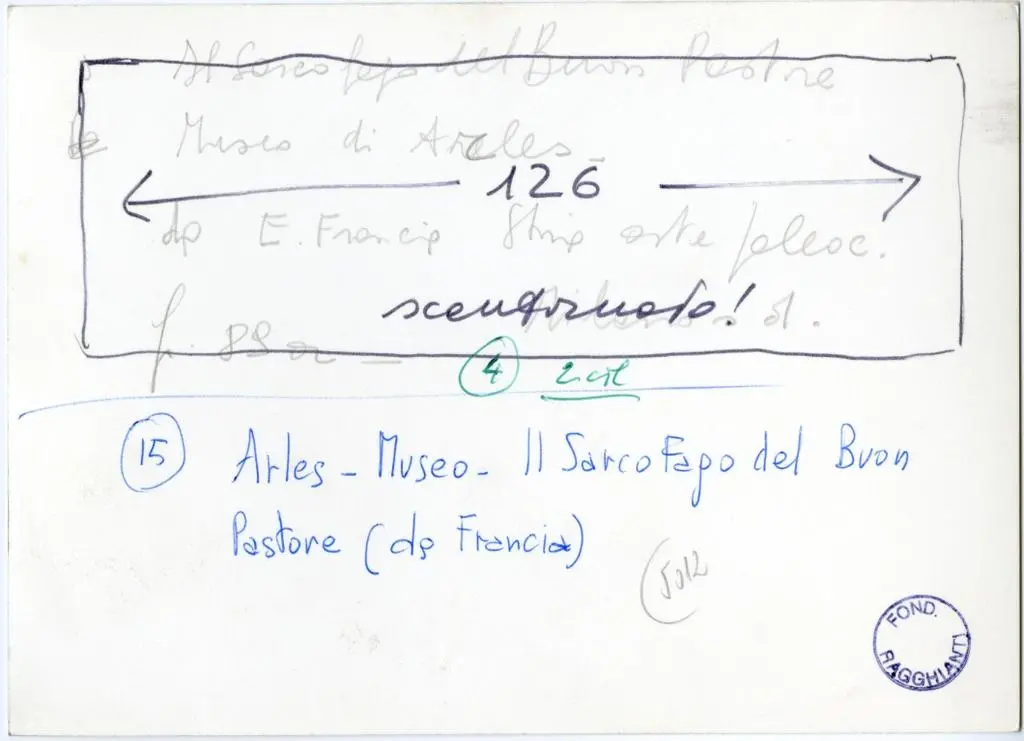 Il Sarcofago del Buon Pastore
Museo di Arles
126
da E. Francia Stria arte paleoc.
scontornato!
4 2 col
15 Arles - Museo - Il Sarcofago del Buon
Pastore (da Francia)
5012
FOND.
RAGGHIANTI